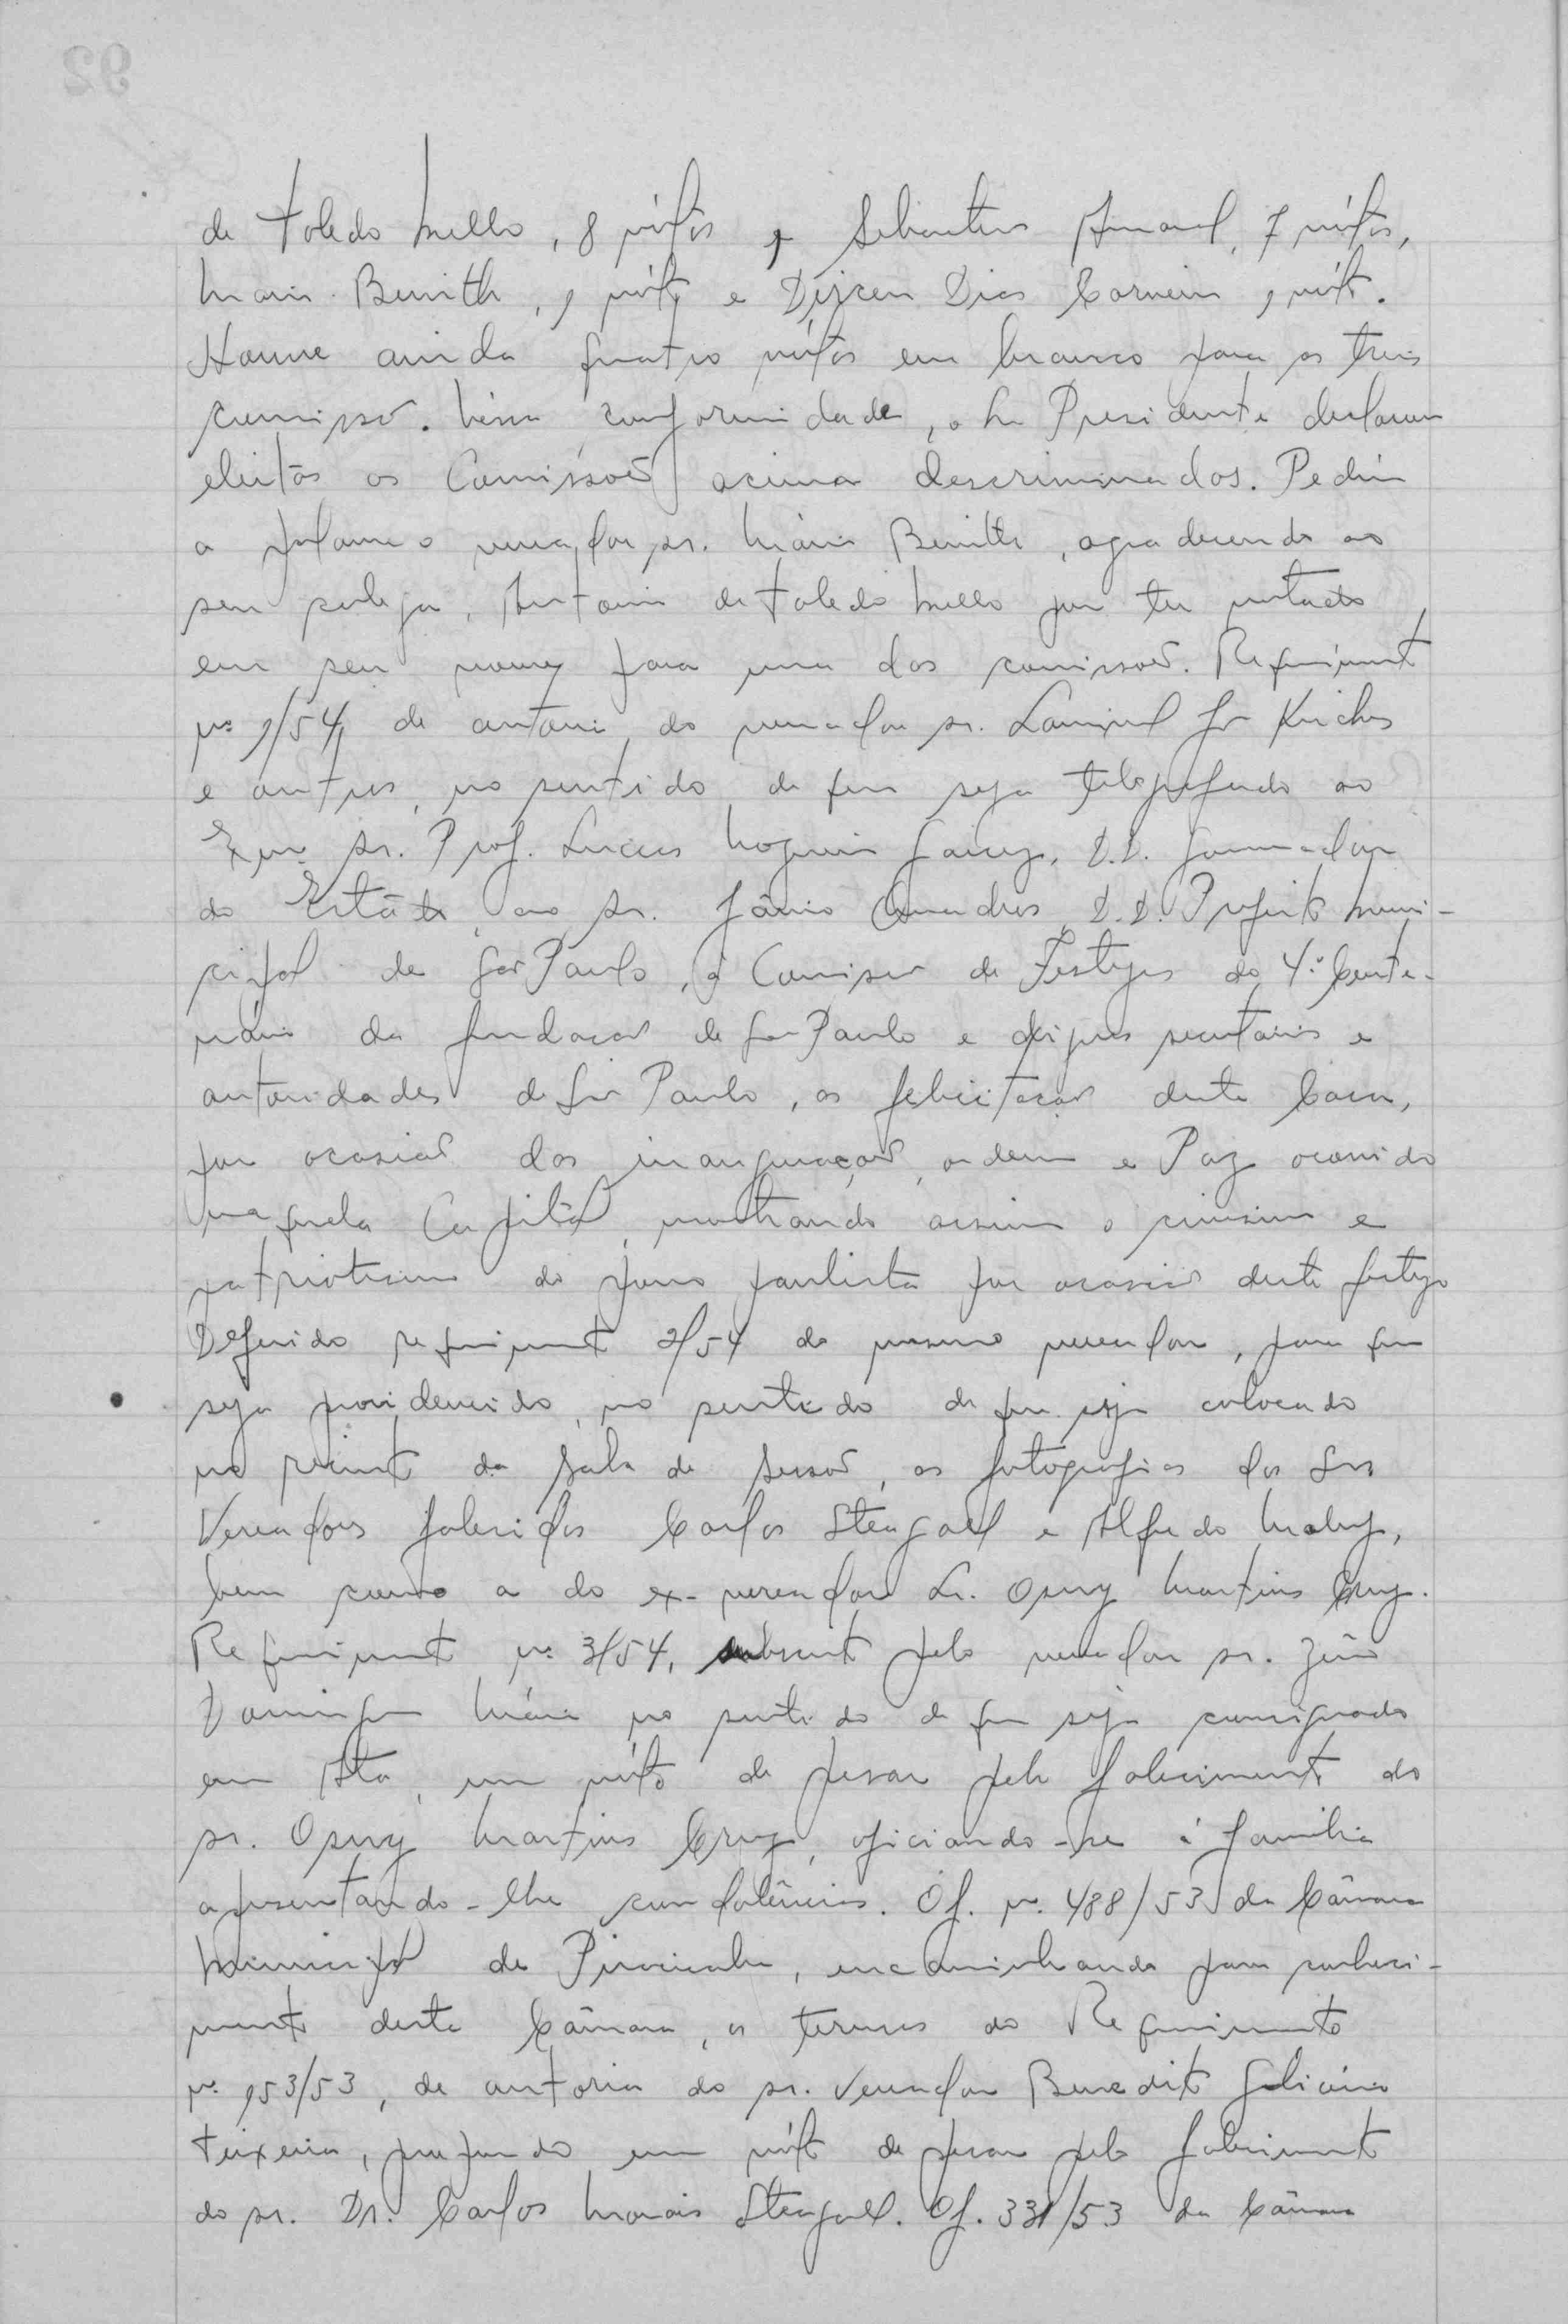 de Toledo Mello, 8 vótos, Sebastião Amaral, 7 vótos,
Mario Benith, 1 vóto e Dirceu Dias Carneiro 1 vóto.
Houve ainda quatro vótos em branco para as tres
comissões. Nessa conformidade, o Sr Presidente declarou
eleitas as Comissões acima descriminadas. Pediu
a palavra o vereador sr. Mário Benith, agradecendo ao
seu colega, Antonio de Toledo Mello por ter votado
em seu nome para uma das comissões. Requerimento
nº 1/54, de autoria do vereador sr. Lourival
e outros, no sentido de que seja telegrafado ao
Exmo sr. Prof. Lucas Nogueira Garcez, D.D. Governador
do Estado, ao sr. Jânio Quadros D.D. Prefeito Muni-
cipal de São Paulo, á Comissão de Festejos do 4.º Cente-
nário da fundação de São Paulo e dignos secretários e
autoridades de São Paulo, as felicitações desta Casa,
por ocasião das inaugurações, ordem e Paz ocorrido
naquela Capital, mostrando assim o civismo e
patriotismo do povo paulista por ocasião deste festejo
Deferido requerimento 2/54 do mesmo vereador, para que
seja providenciado, no sentido de que seja colocado
no recinto da Sala de Sessões, as fotografias dos Srs
Vereadores falecidos Carlos Steagall e Alfredo Maluf,
bem como a do ex-vereador Sr. Osny Martins Cruz.
Requerimento nº 3/54, subscrito pelo vereador sr. Zeno
Domingos Maia no sentido de que seja consignado
em Ata, um vóto de pesar pelo falecimento do
sr. Osny Martins Cruz, oficiando-se á família
apresentando-lhe condolências. Of. nº 488/53 da Câmara
Municipal de Piracicaba, encaminhando para conheci-
mento desta Câmara, os termos do Requerimento
nº 153/53, de autoria do sr. Vereador Benedito Galiano
Teixeira, propondo um vóto de pesar pelo falecimento
do sr. Dr. Carlos Morais Steagall. Of. 331/53 da Câmara